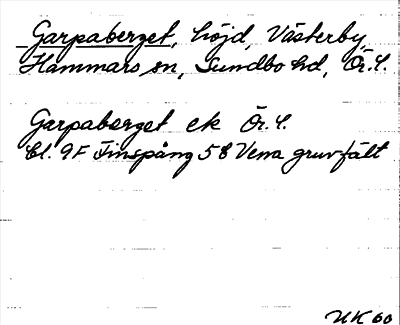 Garpaberget, höjd, Västerby,
Hammars sn, Sundbo hd, Ör. l.
Garpaberget ek Ör. l.
Bl. 9F Finspång 58 Vena gruvfält
UK 60